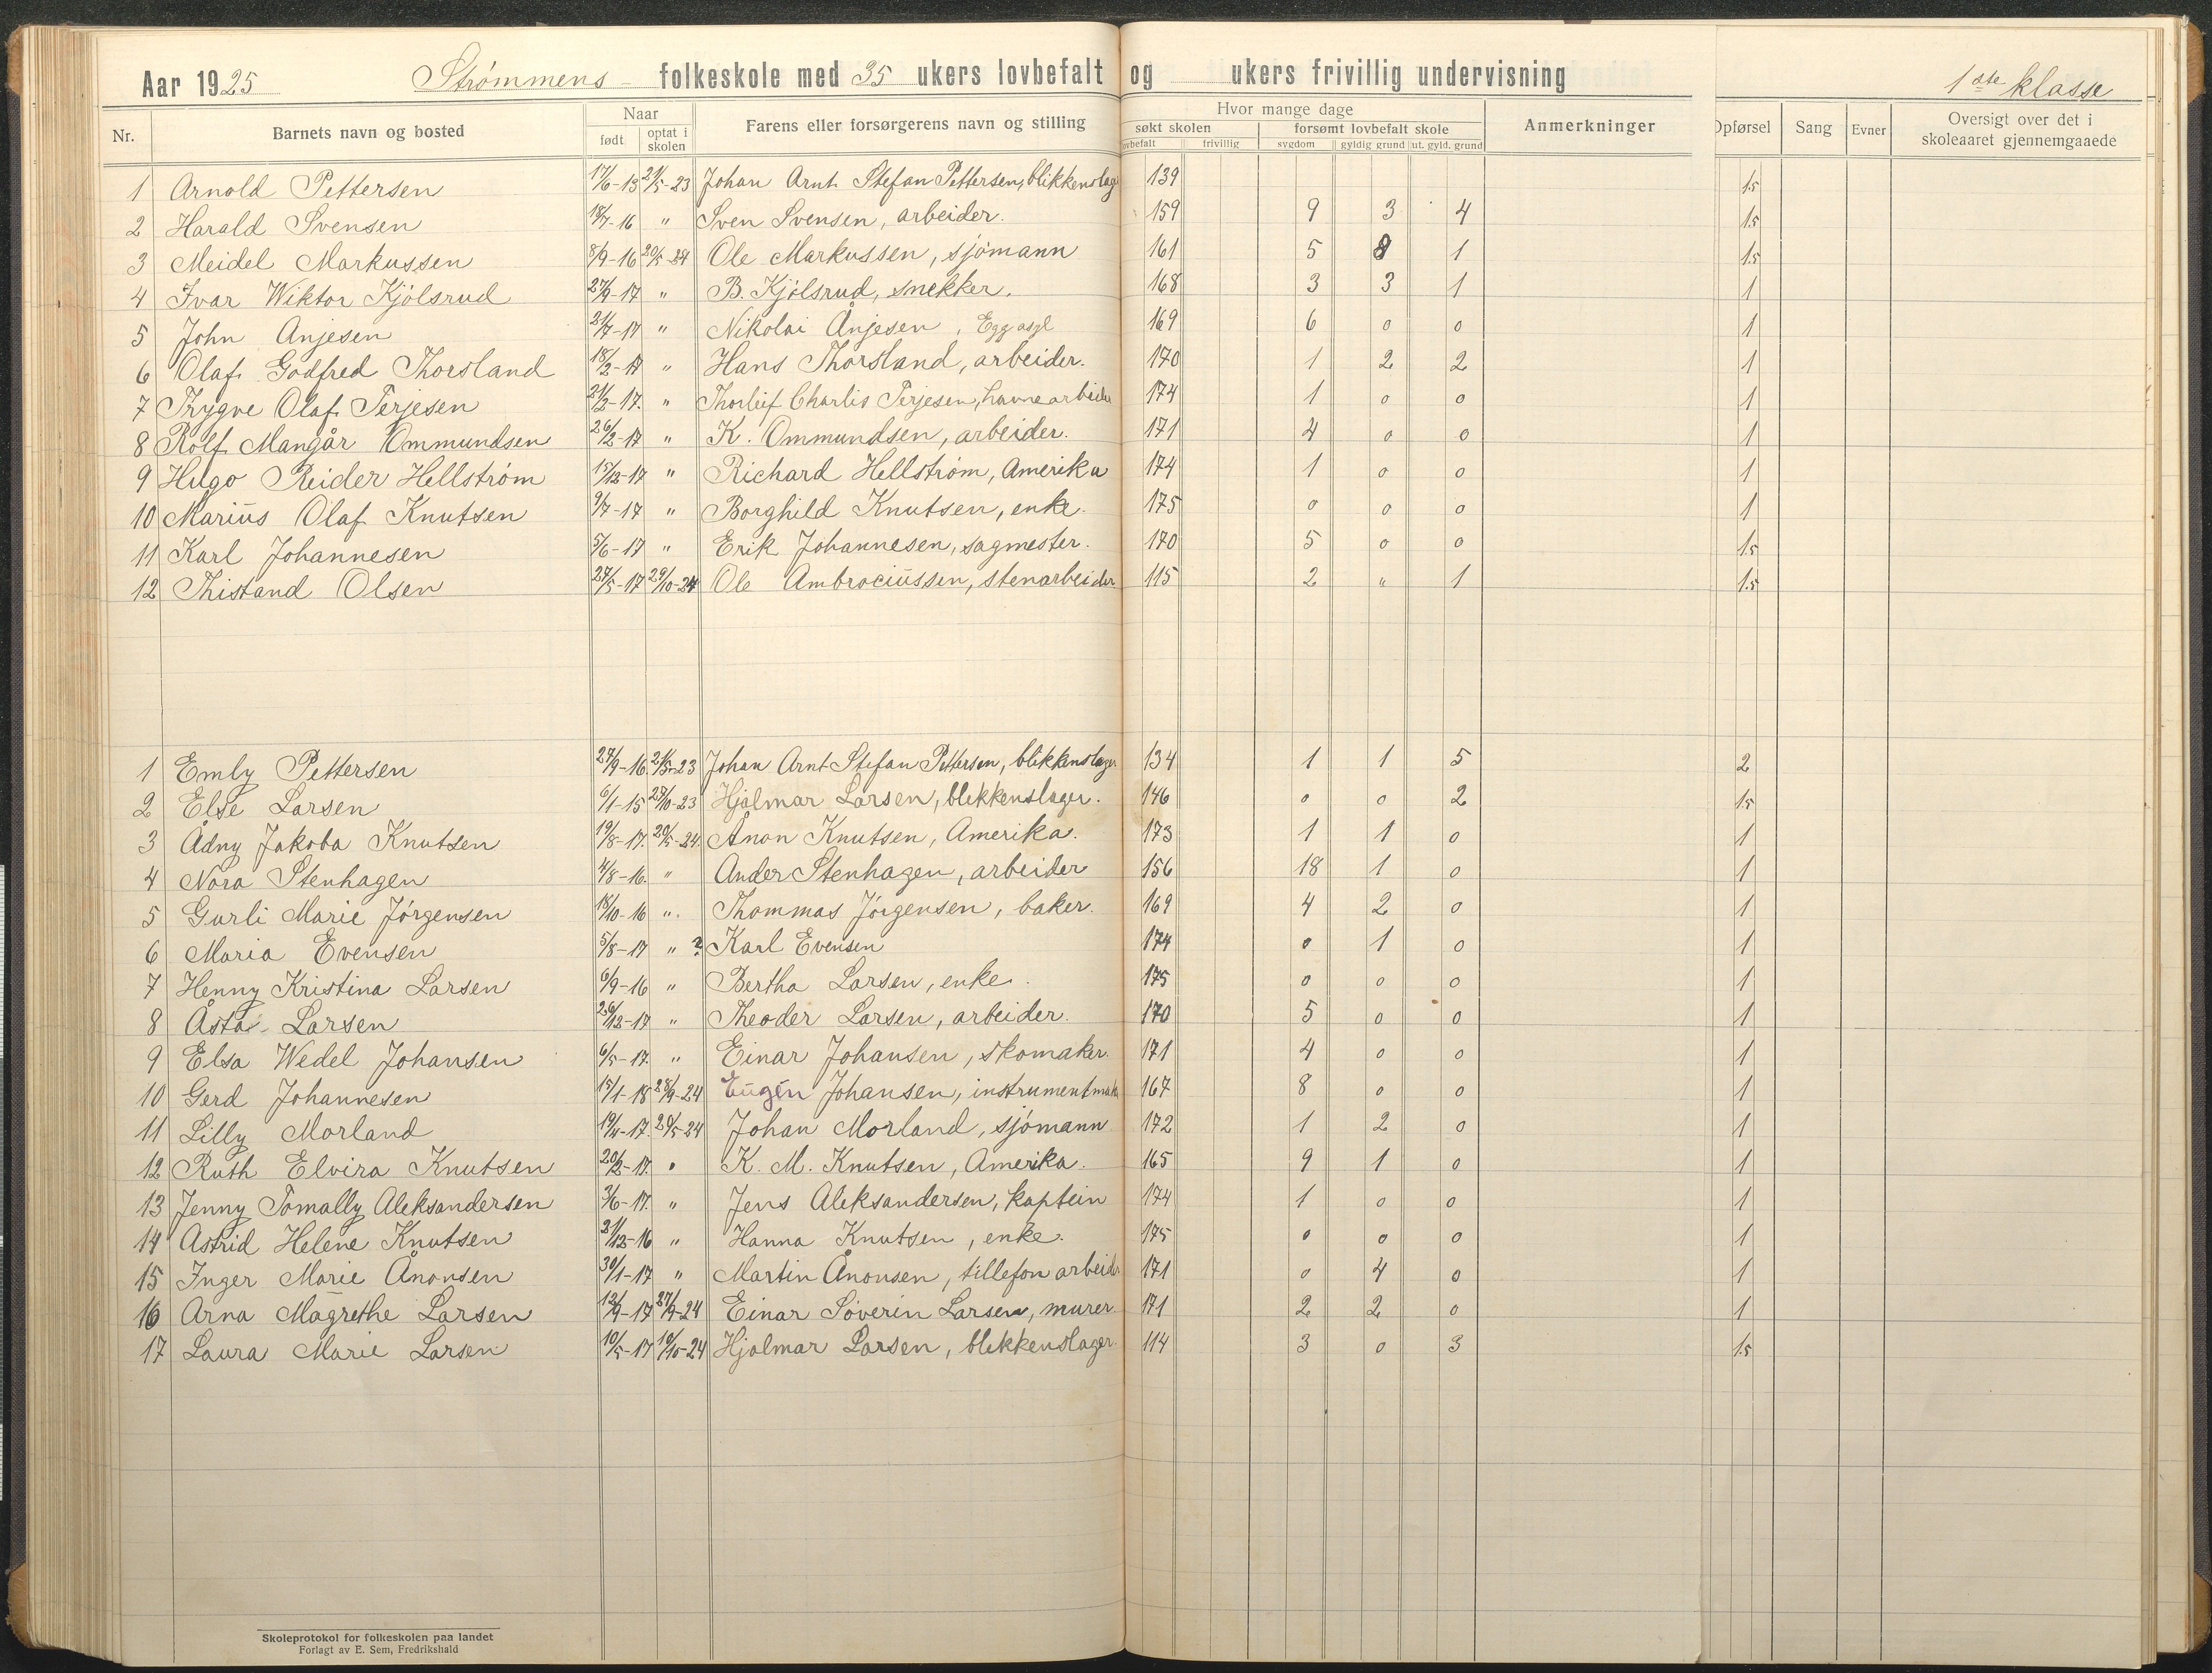 Aar 1925 Strømmens folkeskole med 35 ukers lovbefalt og ukers frivillig undervisning 1ste klasse
Nr. Barnets navn og bosted Naar født optat i skolen Farens eller forsørgerens navn og stilling Hvor mange dage søkt skolen lovbefalt frivillig forsømt lovbefalt skole sygdom gyldig grund ut. gyld. grund Anmerkninger Opførsel Sang Evner Oversigt over det i skoleaaret gjennemgaaede
1 Arnold Pettersen 17/6-13 21/5-23 Johan Arnt Stefan Pettersen, blikkenslag 139 1.5
2 Harald Svensen 18/7-16 " Sven Svensen, arbeider. 159 9 3 4 1.5
3 Meidel Markussen 8/9-16 20/5-24 Ole Markussen, sjømann 161 5 8 1 1.5
4 Ivar Wiktor Kjölsrud 27/9-17 " B. Kjölsrud, snekker. 168 3 3 1 1
5 John Anjesen 21/7-17 " Nikolai Ånjesen, 169 6 0 0 1
6 Olaf Godfred Thorsland 18/2-17 " Hans Thorsland, arbeider. 170 1 2 2 1
7 Trygve Olaf Terjesen 21/2-17. " Thorleif Charlis Terjesen, havnearbeider 174 1 0 0 1
8 Rolf Mangår Ommundsen 26/2-17 " K. Ommundsen, arbeider. 171 4 0 0 1
9 Hugo Reider Hellström 15/12-17 " Richard Hellström, Amerika 174 1 0 0 1
10 Marius Olaf Knutsen 9/7-17 " Borghild Knutsen, enke. 175 0 0 0 1
11 Karl Johannesen 5/6-17 " Erik Johannesen, sagmester. 170 5 0 0 1.5
12 Thistand Olsen 27/5-17 29/10-24 Ole Ambrociussen, stenarbeider. 115 2 " 1 1.5
1 Emly Pettersen 27/9-16. 21/5-23 Johan Arnt Stefan Pettersen, blikkenslager 134 1 1 5 2
2 Else Larsen 6/1-15 27/10-23 Hjalmar Larsen, blekkenslager. 146 0 0 2 1.5
3 Ådny Jakoba Knutsen 19/8-17. 20/5-24. Ånon Knutsen, Amerika. 173 1 1 0 1
4 Nora Stenhagen 4/8-16. " Ander Stenhagen, arbeider 156 18 1 0 1
5 Gurli Marie Jörgensen 18/10-16 " Thommas Jörgensen, baker. 169 4 2 0 1
6 Maria Evensen 5/8-17 " ? Karl Evensen 174 0 1 0 1
7 Henny Kristina Larsen 6/9-16 " Bertha Larsen, enke. 175 0 0 0 1
8 Åsta Larsen 26/12-17 " Theoder Larsen, arbeider. 170 5 0 0 1
9 Elsa Wedel Johansen 6/5-17. " Einar Johansen, skomaker. 171 4 0 0 1
10 Gerd Johannesen 15/1-18 28/9-24 Eugén Johansen, instrumentmak 167 8 0 0 1
11 Lilly Morland 19/4-17. 20/5-24 Johan Morland, sjömann 172 1 2 0 1
12 Ruth Elvira Knutsen 20/2-17. " K. M. Knutsen, Amerika. 165 9 1 0 1
13 Jenny Tomally Aleksandersen 3/6-17. " Jens Aleksandersen, kaptein 174 1 0 0 1
14 Astrid Helene Knutsen 21/12-16 " Hanna Knutsen, enke. 175 0 0 0 1
15 Inger Marie Ånonsen 30/1-17 " Martin Ånonsen, tillefon arbeider 171 0 4 0 1
16 Arna Magrethe Larsen 12/9-17 27/9-24 Einar Söverin Larsen, murer 171 2 2 0 1
17 Laura Marie Larsen 10/5-17 10/10-24 Hjalmar Larsen, blekkenslager. 114 3 0 3 1.5
Skoleprotokol for folkeskolen paa landet
Forlagt av E. Sem, Fredrikshald